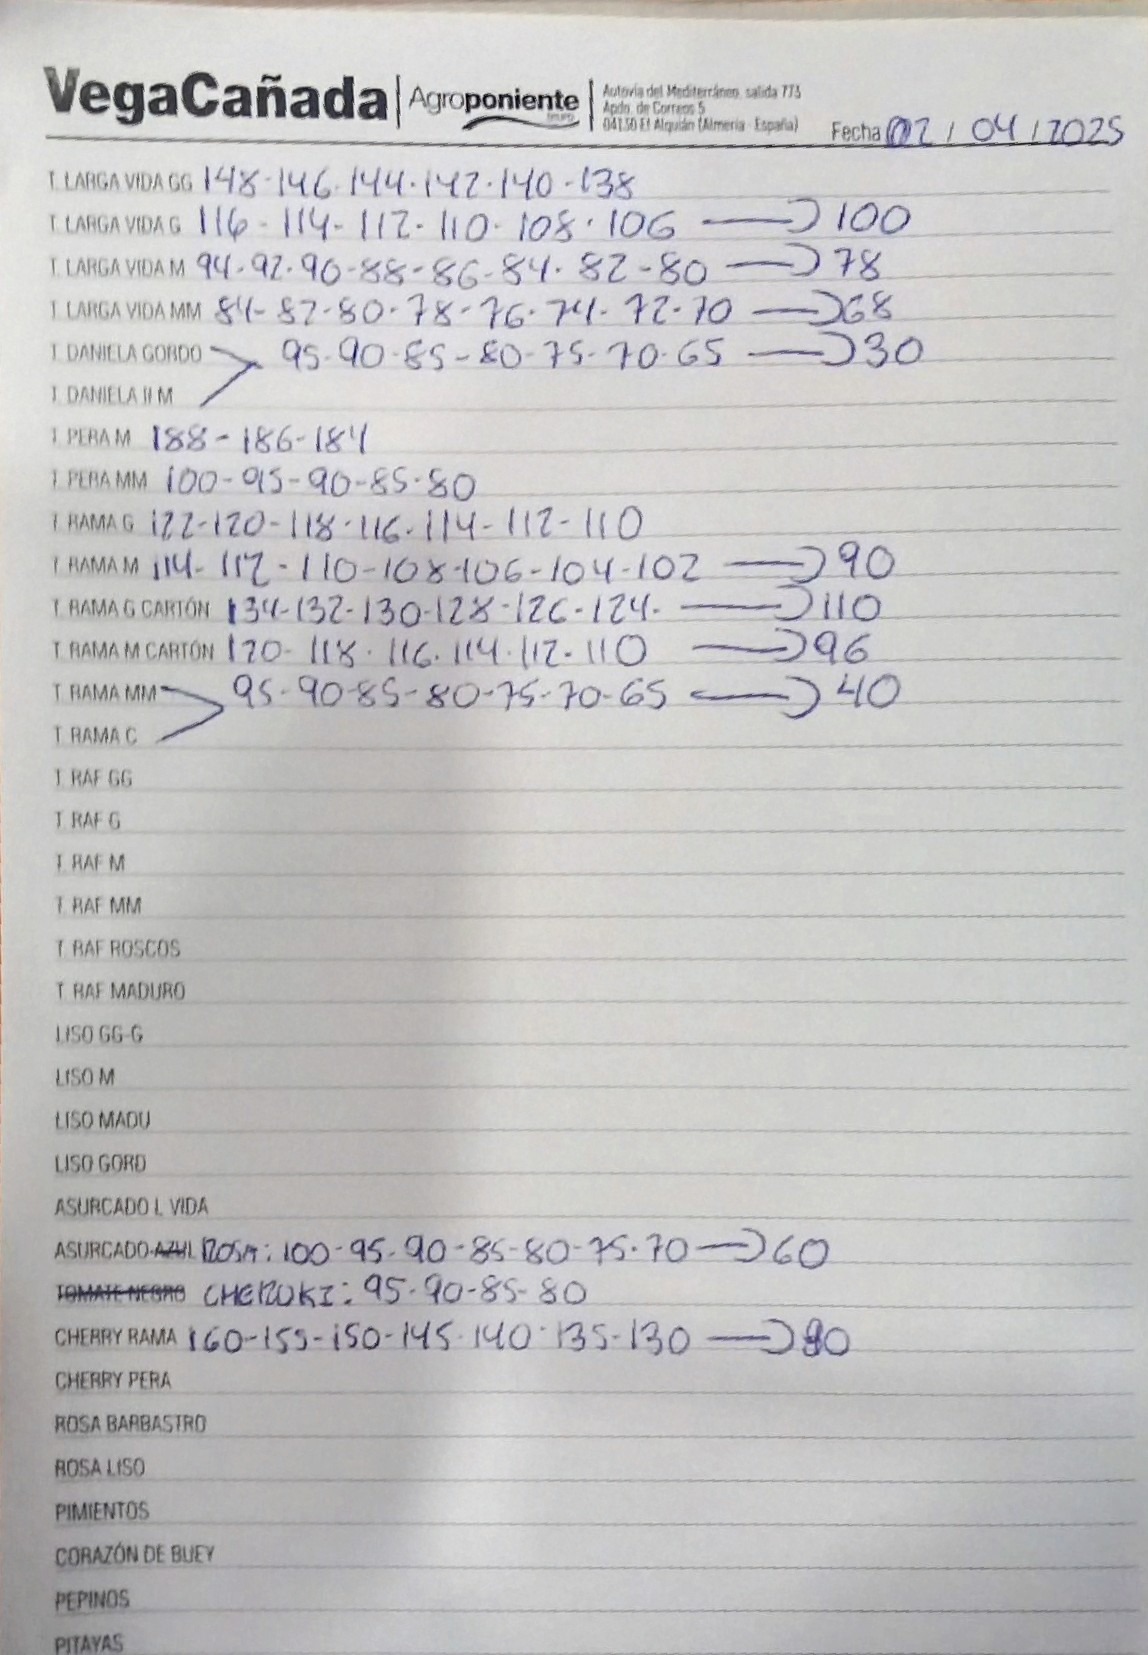 VegaCañada | Agroponiente GRUPO
Autovía del Mediterráneo, salida 773
Apdo. de Correos 5
04130 El Alquián (Almería - España)
Fecha 02 / 04 / 2025
T. LARGA VIDA GG 148-146-144-142-140-138
T. LARGA VIDA G 116-114-112-110-108-106 → 100
T. LARGA VIDA M 94-92-90-88-86-84-82-80 → 78
T. LARGA VIDA MM 84-82-80-78-76-74-72-70 → 68
T. DANIELA GORDO 95-90-85-80-75-70-65 → 30
T. DANIELA II M
T. PERA M 188-186-184
T. PERA MM 100-95-90-85-80
T. RAMA G 122-120-118-116-114-112-110
T. RAMA M 114-112-110-108-106-104-102 → 90
T. RAMA G CARTÓN 134-132-130-128-126-124- → 110
T. RAMA M CARTÓN 120-118-116-114-112-110 → 96
T. RAMA MM 95-90-85-80-75-70-65 → 40
T. RAMA C
T. RAF GG
T. RAF G
T. RAF M
T. RAF MM
T. RAF ROSCOS
T. RAF MADURO
LISO GG-G
LISO M
LISO MADU
LISO GORD
ASURCADO L VIDA
ASURCADO AZUL ROSA: 100-95-90-85-80-75-70 → 60
TOMATE NEGRO CHEROKI: 95-90-85-80
CHERRY RAMA 160-155-150-145-140-135-130 →
CHERRY PERA
ROSA BARBASTRO
ROSA LISO
PIMIENTOS
CORAZÓN DE BUEY
PEPINOS
PITAYAS